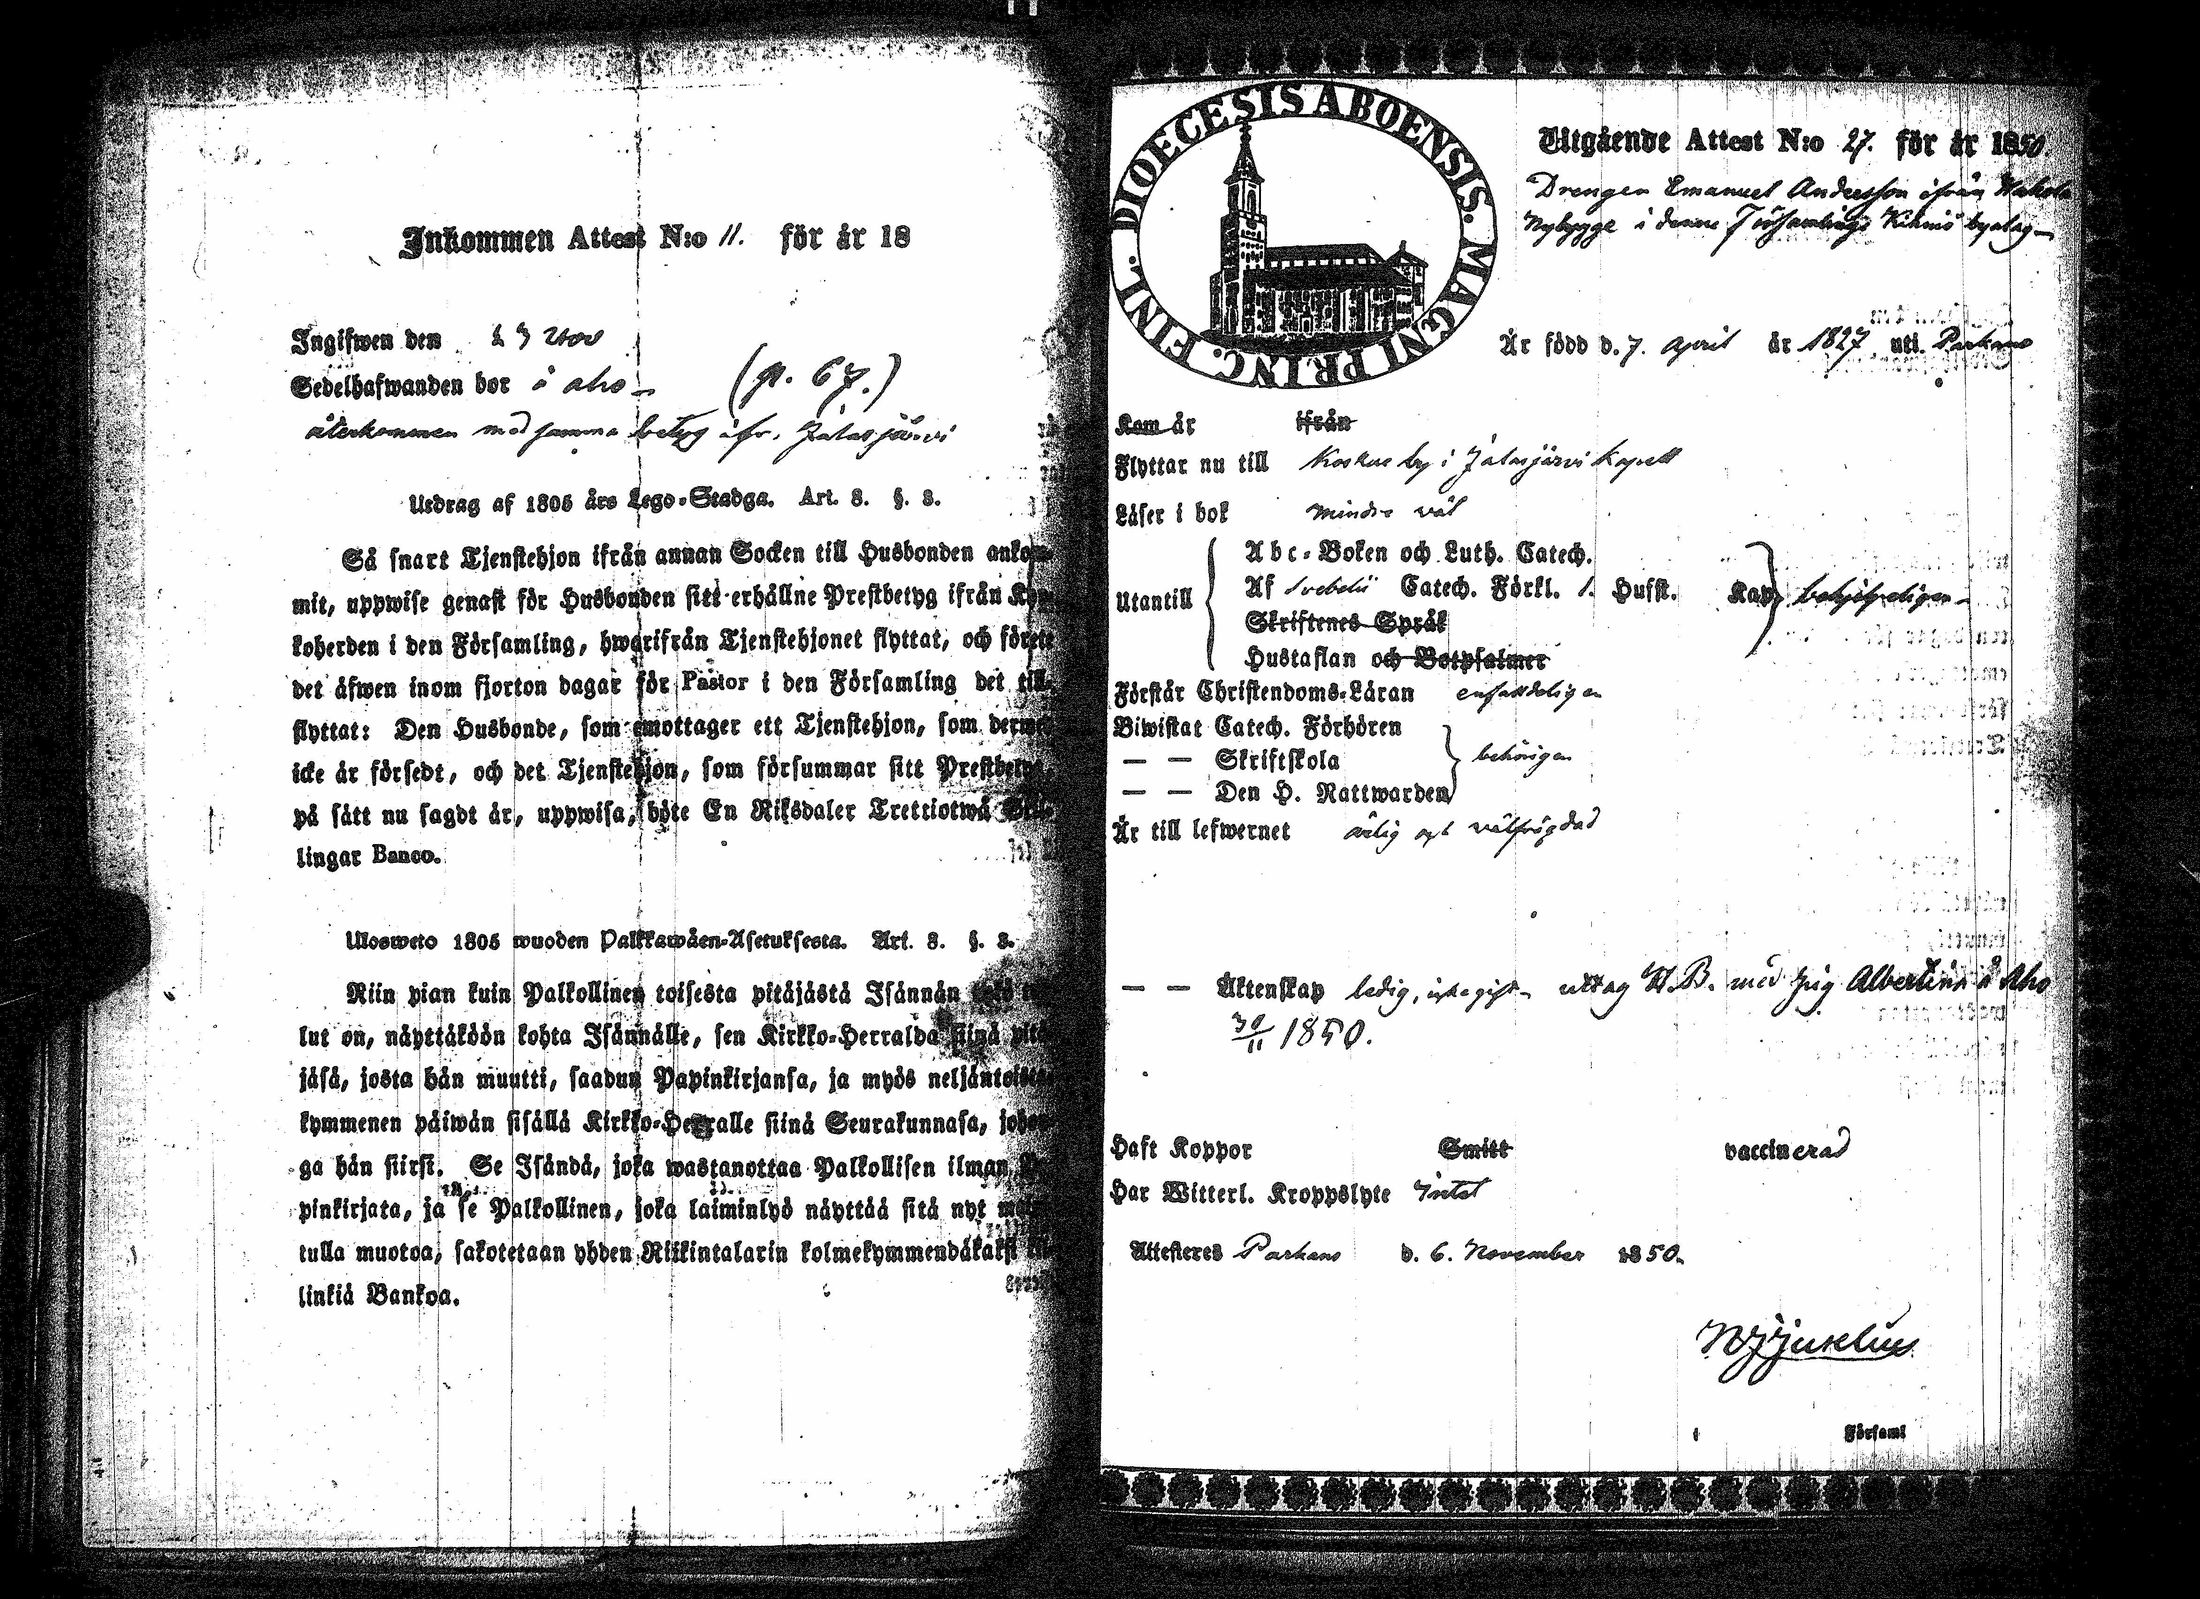 Inkommen Attest N:o 11. för år 18
Ingifwen den 23 Nov
Sedelhafwanden bor å Aho (p. 67.)
återkommen med samma betyg ifr. Jalasjärvi
Utdrag af 1805 års Lego-Stadga. Art. 8. §. 3.
Så snart Tjenstehjon ifrån annan Socken till Husbonden ankom-
mit, uppwise genast för Husbonden sitt erhållne Prestbetyg ifrån Kyr-
koherden i den Församling, hwarifrån Tjenstehjonet flyttat, och förete
det äfwen inom fjorton dagar för Pastor i den Församling det till-
flyttat: Den Husbonde, som emottager ett Tjenstehjon, som dermed
icke är försedt, och det Tjenstehjon, som försummar sitt Prestbetyg,
på sätt nu sagdt är, uppwisa, böte En Riksdaler Trettiotwå Skil-
lingar Banco.
Ulosweto 1805 wuoden Palkkawäen-Asetuksesta. Art. 8. §. 3.
Niin pian kuin Palkollinen toisesta pitäjästä Isännän
lut on, näyttäköön kohta Isännälle, sen Kirkko-Herralda siinä pitä-
jäsä, josta hän muutti, saadun Papinkirjansa, ja myös neljäntoista-
kymmenen päiwän sisällä Kirkko-Herralle siinä Seurakunnasa, johon-
ga hän siirsi. Se Isändä, joka wastanottaa Palkollisen ilman Pa-
pinkirjata, ja se Palkollinen, joka laiminlyö näyttää sitä nyt
tulla muotoa, sakotetaan yhden Riikintalarin kolmekymmendäkaksi kil-
linkiä Bankoa.
DIOECESIS ABOENSIS. MAGNI PRINC. FINL.
Utgående Attest N:o 27. för år 1850.
Drengen Emanuel Andersson ifrån
Nybygge i denna Församlings Kihniö byalag
Är född d. 7. April år 1827 uti Parkano
Kom år ifrån
Flyttar nu till Koskue by i Jalasjärvi Kapell
Läser i bok mindre väl
Utantill
Abc-Boken och Luth. Catech.
Af Svebelii Catech. Förkl. 1. Hufst. Kap behjelpeligen
Skriftenes Språk
Hustaflan och Botpsalmer
Förstår Christendoms-Läran enfaldeligen
Biwistat Catech. Förhören
— — Skriftskola behörigen
— — Den H. Nattwarden
Är till lefwernet ärlig och välfrägdad
— — Äktenskap ledig, icke gift uttag H.B. med pig Albertina å Aho
30/11 1850.
Haft Koppor Smitt vaccinerad
Har Witterl. Kroppslyte Intet
Attesteres Parkano d. 6. November 1850.
Församl